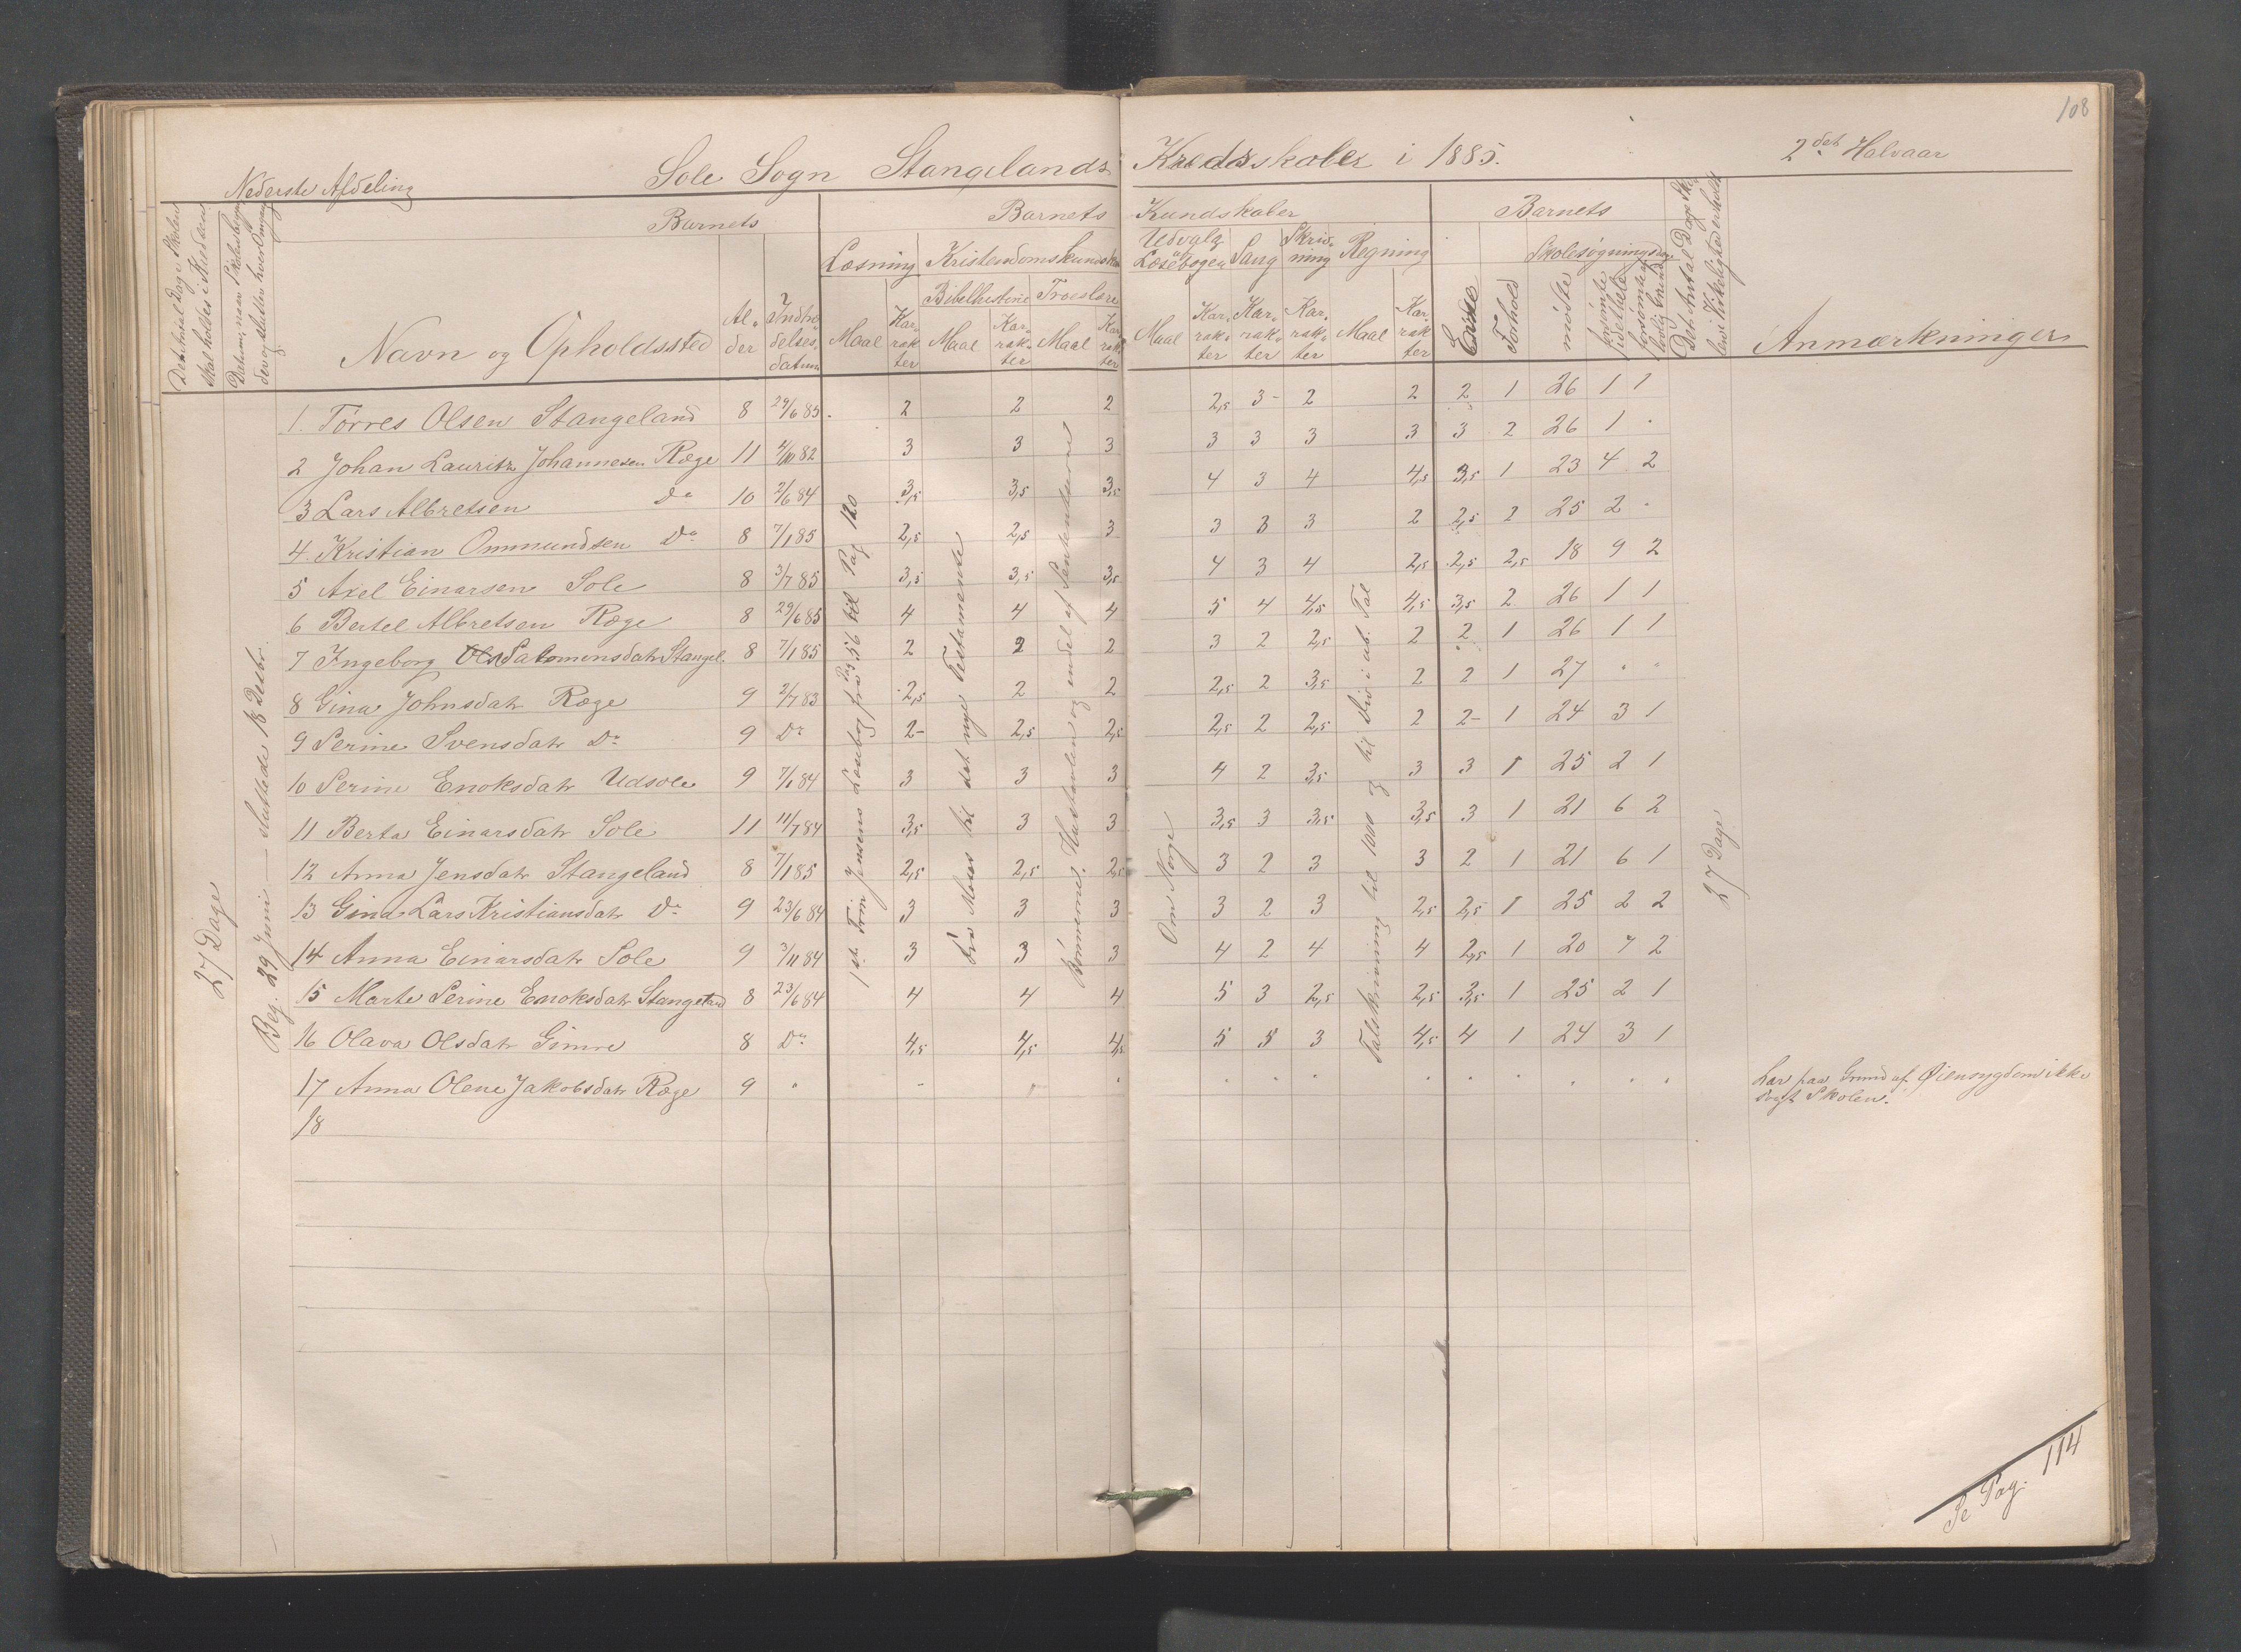 108
Sole Sogn Stangelands Kredsskoler i 1885. 2det Halvaar
Nederste Afdeling
Barnets Barnets Kundskaber Barnets
Læsning Kristendomskundskab Udvalg af Læsebogen Sang Skrivning Regning Skolesøgningsdage
Bibelhistorie Troeslære
Det Antal Dage Skolen skal holdes i Kredsen
Datum, naar Skolen begynder og slutter hver Omgang
Navn og Opholdssted Alder Indtrædelsesdatum Maal Karrakter Maal Karrakter Maal Karrakter Maal Karrakter Karrakter Karrakter Maal Karrakter Evne Forhold mødte forsømte i det hele forsømte af lovlig Grund
Det Antal Dage Skolen i Virkeligheden er holdt
Anmærkninger
1. Tørres Olsen Stangeland 8 29/6 85. 2 2 2 2,5 3- 2 2 2 1 26 1 1
2 Johan Lauritz Johannesen Ræge 11 4/10 82 3 3 3 3 3 3 3 3 2 26 1 .
3 Lars Albretsen Do 10 2/6 84 3,5 3,5 3,5 4 3 4 4,5 3,5 1 23 4 2
4. Kristian Ommundsen Do 8 7/1 85 2,5 2,5 3 3 3 3 2 2,5 2 25 2 .
5 Axel Einarsen Sole 8 3/7 85 3,5 3,5 3,5 4 3 4 2,5 2,5 2,5 18 9 2
6 Bertel Albretsen Ræge 8 29/6 85 4 4 4 5 4 4,5 4,5 3,5 2 26 1 1
7 Ingeborg Salomonsdatr Stangel. 8 7/1 85 2 2 2 3 2 2,5 2 2 1 26 1 1
8 Gina Johnsdatr Ræge 9 2/7 83 2,5 2 2 2,5 2 3,5 2 2 1 27 " "
9 Serine Svensdatr Do 9 Do 2- 2,5 2,5 2,5 2 2,5 2 2- 1 24 3 1
10 Serine Enoksdatr Udsole 9 7/1 84 3 3 3 4 2 3,5 3 3 1 25 2 1
11 Berta Einarsdatr Sole 11 11/7 84 3,5 3 3 3,5 3 3,5 3,5 3 1 21 6 2
12 Anna Jensdatr Stangeland 8 7/1 85 2,5 2,5 2,5 3 2 3 3 2 1 21 6 1
13 Gina Lars Kristiansdatr Do 9 23/6 84 3 3 3 3 2 3 2,5 2,5 1 25 2 2
14 Anna Einarsdatr Sole 9 3/11 84 3 3 3 4 2 4 4 2,5 1 20 7 2
15 Marte Serine Enoksdatr Stangeland 8 23/6 84 4 4 4 5 3 2,5 2,5 3,5 1 25 2 1
16 Olava Olsdatr Gimre 8 Do 4,5 4,5 4,5 5 5 3 4,5 4 1 24 3 1
17 Anna Olene Jakobsdatr Ræge 9 "
Har paa Grund af Øiensygdom ikke
søgt Skolen.
18
27 Dage
Beg. 29 Juni — sluttede 18 Desbr.
1st. Trin Jensens Læsebog fra Pag 56 til Pag 120
fra Moses til det nye Testamente
Bønnerne, Hustavlen og endel af Sententserne
Om Norge
Talskrivning til 1000 og til Div i ub. Tal
27 Dage
Se Pag. 114